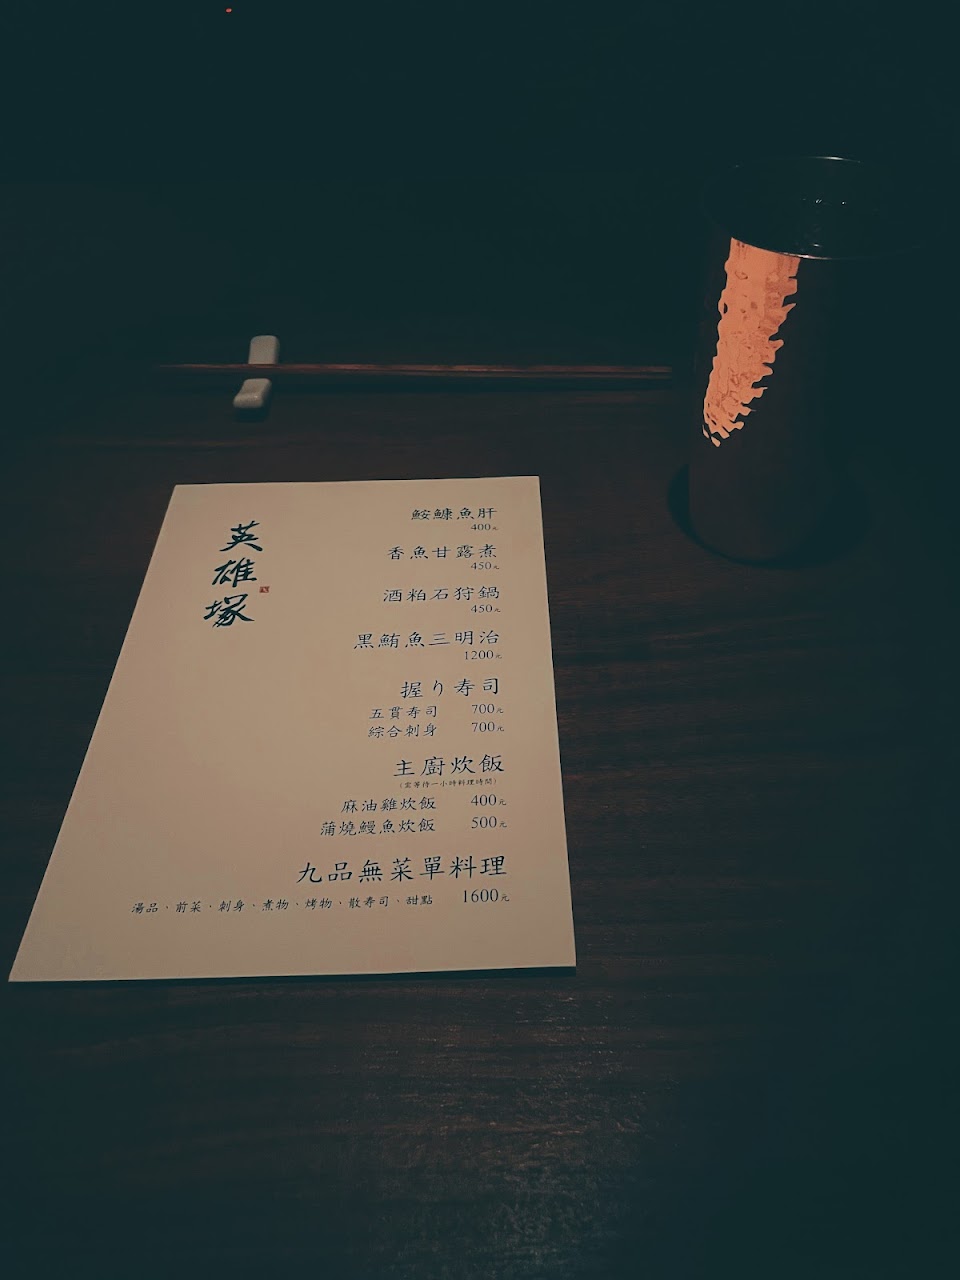 英雄塚
鮟鱇魚肝
400元
香魚甘露煮
450元
酒粕石狩鍋
450元
黑鮪魚三明治
1200元
握り寿司
五貫寿司 700元
綜合刺身 700元
主廚炊飯
(需等待一小時料理時間)
麻油雞炊飯 400元
蒲燒鰻魚炊飯 500元
九品無菜單料理
湯品、前菜、刺身、煮物、烤物、散寿司、甜點 1600元